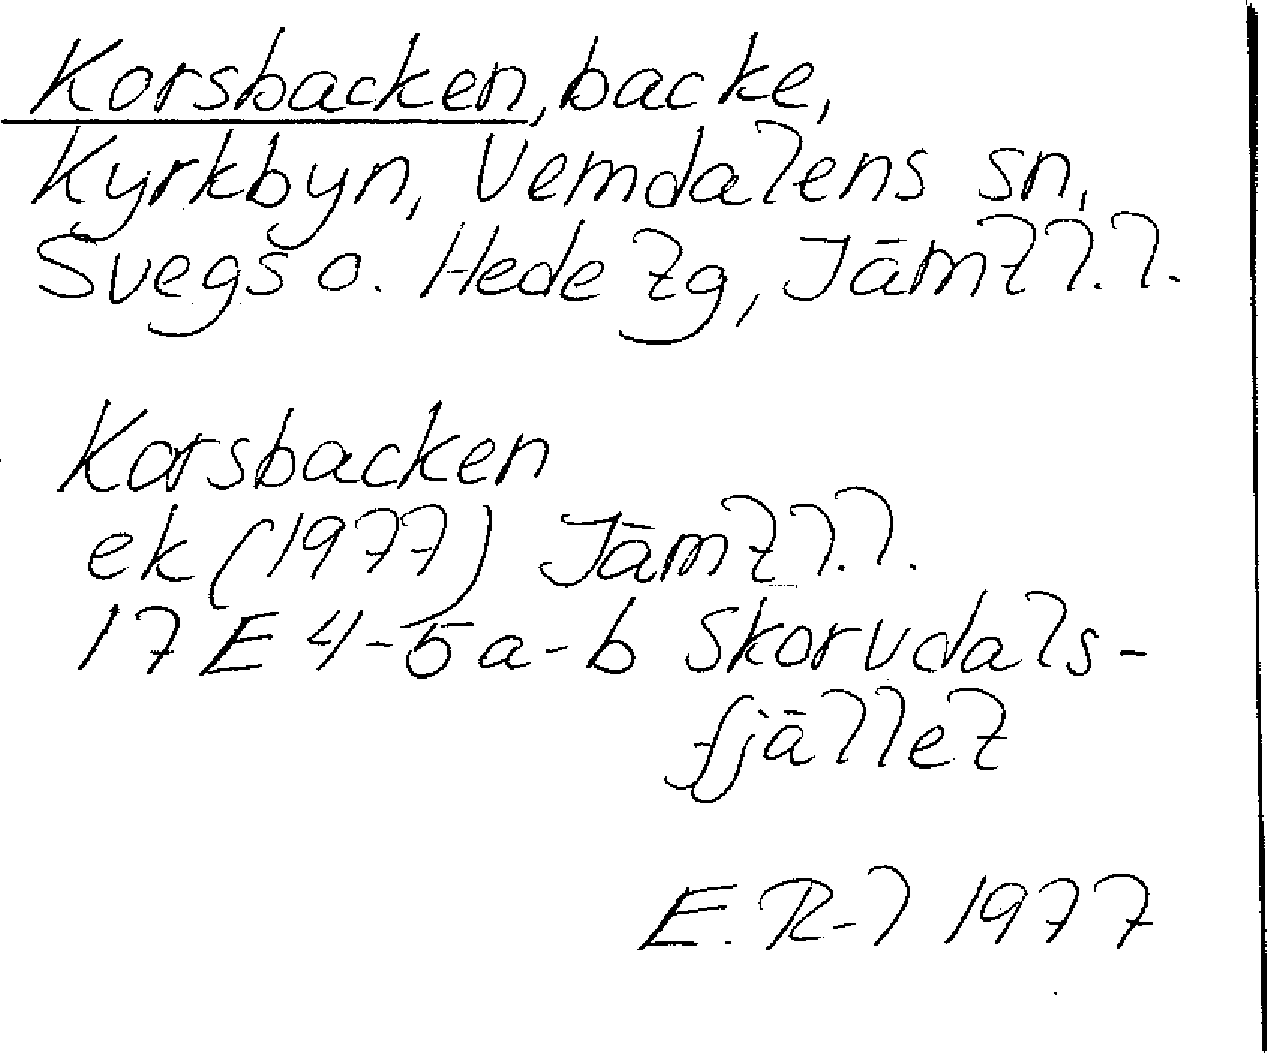 Korsbacken, backe,
Kyrkbyn, Vemdalens sn,
Svegs o. Hede tg, Jämtl. l.
Korsbacken
ek (1977) Jämtl. l.
17 E 4-5 a-b Skorvdals-
fjället
E. R-l 1977